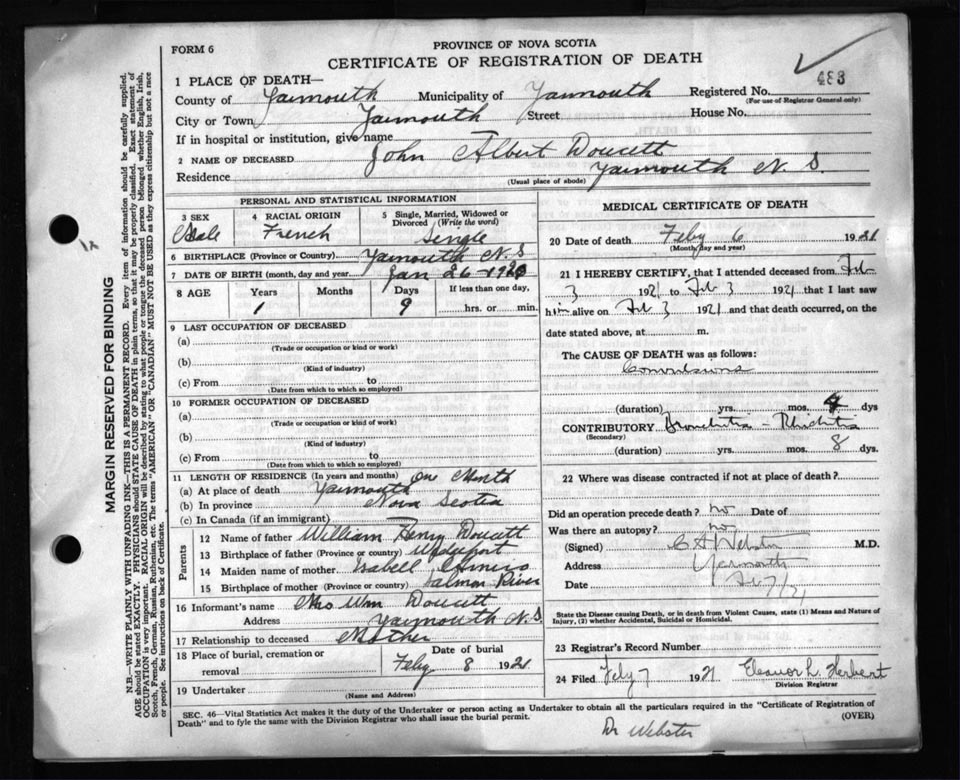 FORM 6
PROVINCE OF NOVA SCOTIA
CERTIFICATE OF REGISTRATION OF DEATH
483
1 PLACE OF DEATH—
County of Yarmouth Municipality of Yarmouth Registered No.
(For use of Registrar General only)
City or Town Yarmouth Street House No.
If in hospital or institution, give name
2 NAME OF DECEASED John Albert Doucett
Residence Yarmouth N. S.
(Usual place of abode)
PERSONAL AND STATISTICAL INFORMATION
3 SEX Male
4 RACIAL ORIGIN French
5 Single, Married, Widowed or Divorced (Write the word) Single
6 BIRTHPLACE (Province or Country) Yarmouth N. S
7 DATE OF BIRTH (month, day and year) Jan 26 - 1920
8 AGE Years Months Days If less than one day,
1 9 hrs. or min.
9 LAST OCCUPATION OF DECEASED
(a)
(Trade or occupation or kind or work)
(b)
(Kind of industry)
(c) From to
(Date from which to which so employed)
10 FORMER OCCUPATION OF DECEASED
(a)
(Trade or occupation or kind of work)
(b)
(Kind of industry)
(c) From to
(Date from which to which so employed)
11 LENGTH OF RESIDENCE (In years and months)
(a) At place of death Yarmouth One Month
(b) In province Nova Scotia
(c) In Canada (if an immigrant)
Parents
12 Name of father William Henry Doucett
13 Birthplace of father (Province or country) Wedgeport
14 Maiden name of mother Isabell
15 Birthplace of mother (Province or country) Salmon River
16 Informant's name Mrs Wm Doucett
Address Yarmouth N. S
17 Relationship to deceased Mother
18 Place of burial, cremation or removal
Date of burial
Feby 8 1921
19 Undertaker
(Name and Address)
MEDICAL CERTIFICATE OF DEATH
20 Date of death Feby 6 1921
(Month, day and year)
21 I HEREBY CERTIFY, that I attended deceased from Feb
3 1921 to Feb 3 1921 that I last saw
him alive on Feb 3 1921 and that death occurred, on the
date stated above, at m.
The CAUSE OF DEATH was as follows:
Convulsions
(duration) yrs. mos. 4 dys
CONTRIBUTORY Bronchitis - Rhinitis
(Secondary)
(duration) yrs. mos. 8 dys.
22 Where was disease contracted if not at place of death?
Did an operation precede death? no Date of
Was there an autopsy? no
(Signed) C A Webster M.D.
Address Yarmouth
Date Feb 7/21
State the Disease causing Death, or in death from Violent Causes, state (1) Means and Nature of
Injury, (2) whether Accidental, Suicidal or Homicidal.
23 Registrar's Record Number
24 Filed Feby 7 1921 Eleanor L. Herbert
Division Registrar
SEC. 46—Vital Statistics Act makes it the duty of the Undertaker or person acting as Undertaker to obtain all the particulars required in the "Certificate of Registration of
Death" and to fyle the same with the Division Registrar who shall issue the burial permit.
(OVER)
Dr Webster
MARGIN RESERVED FOR BINDING
N.B.—WRITE PLAINLY WITH UNFADING INK—THIS IS A PERMANENT RECORD. Every item of information should be carefully supplied.
AGE should be stated EXACTLY. PHYSICIANS should STATE CAUSE OF DEATH in plain terms, so that it may be properly classified. Exact statement of
OCCUPATION is very important. RACIAL ORIGIN will be described by stating to what people or tongue the deceased person belonged whether English, Irish,
Scotch, French, German, Russian, Ruthenian, etc. The terms "AMERICAN" OR "CANADIAN" MUST NOT BE USED as they express citizenship but not a race
or people. See instructions on back of Certificate.